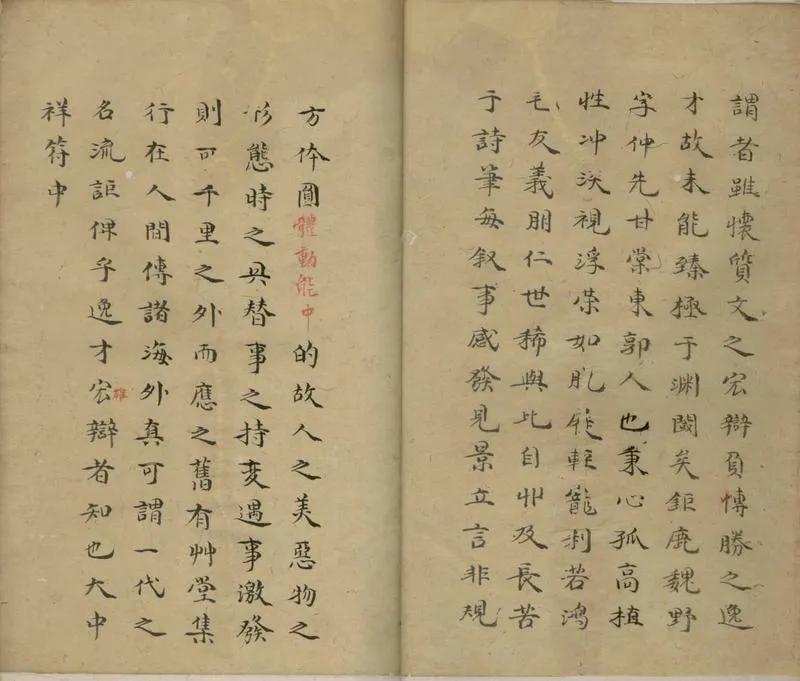 謂者雖懷質文之宏辯負愽勝之逸
才故未能臻極于淵閫矣鉅鹿魏野
字仲先甘棠東郭人也秉心孤高植
性冲淡視浮荣如肌疣軽寵利若鴻
毛友義朋仁世稀與比自丱及長苦
于詩筆每叙事感發見景立言非規
方体圓體動能中的故人之美惡物之
形態時之興替事之持变遇事激發
則可千里之外而應之舊有艸堂集
行在人間傳諸海外真可謂一代之
名流詎俾乎逸才宏雄辯者知也大中
祥符中